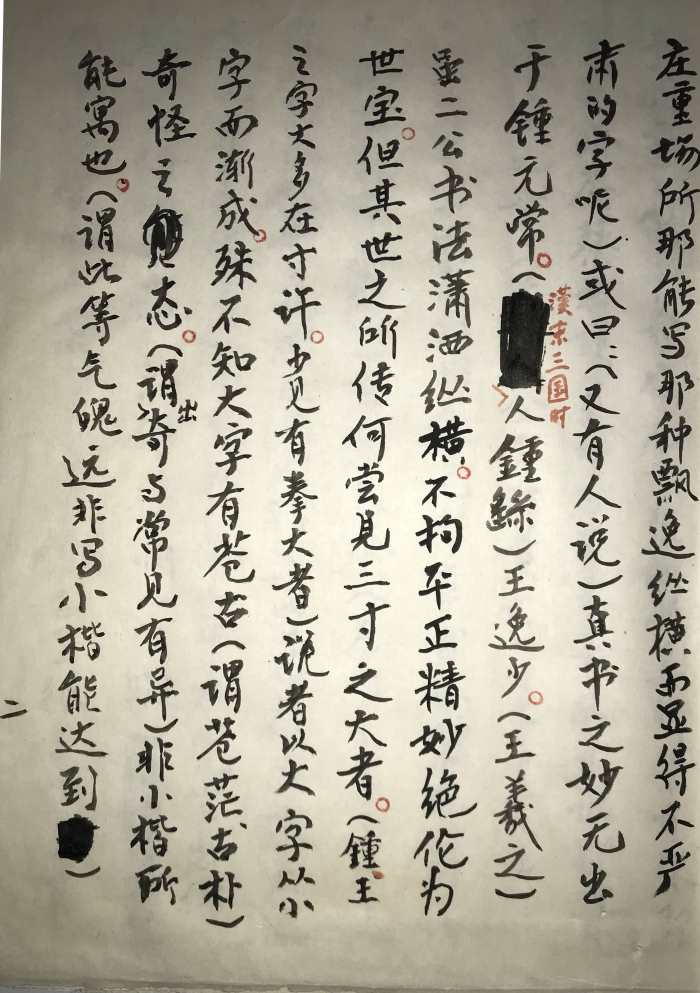 庄重场所那能写那种飘逸纵横而显得不严
肃的字呢）或曰：（又有人说）真书之妙无出
于锺元常。（漢末三国时人锺繇）王逸少。（王羲之）
虽二公书法潇洒纵横。不拘平正精妙绝伦为
世宝。但其世之所传何尝见三寸之大者。（锺王
之字大多在寸许。少见有拳大者）说者以大字从小
字而渐成。殊不知大字有苍古（谓苍茫古朴）
奇怪之态。（谓出奇与常见有异）非小楷所
能寓也。（谓此等气魄远非写小楷能达到）
二